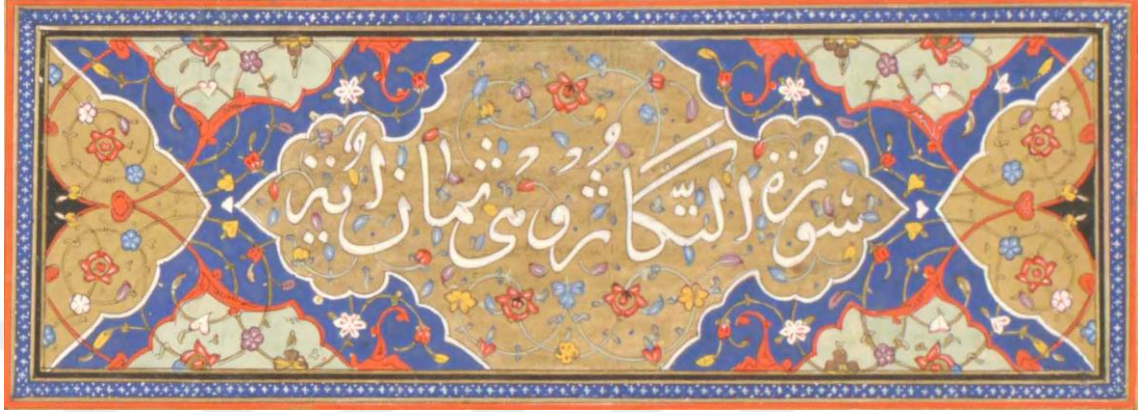 سُورَةُ التَّكَاثُرُ وَهِیَ ثَمانُ ايَةٍ